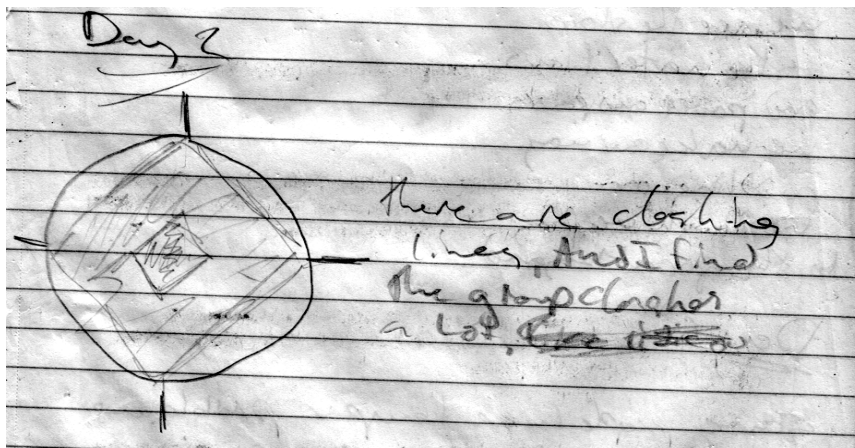 Day 2
there are clashing
lines, And I find
the group clashes
a lot.